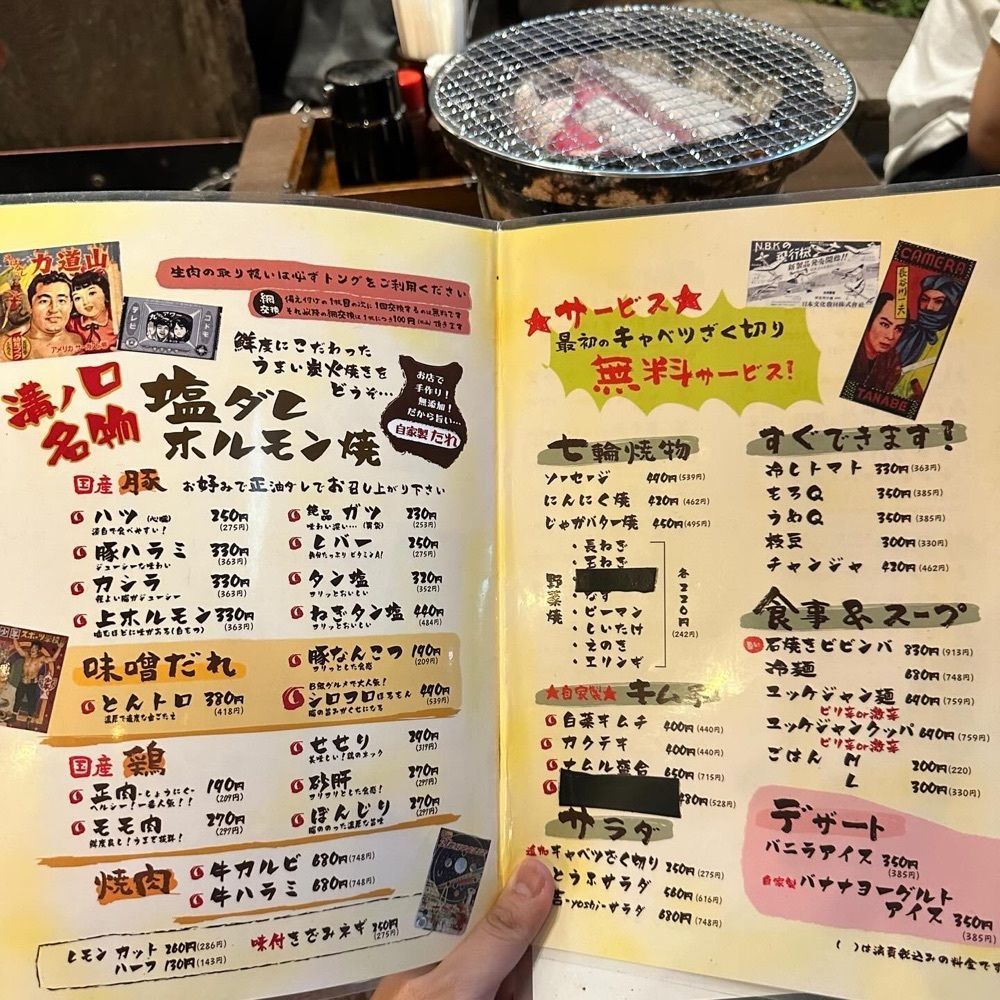 力道山
生肉の取り扱いは必ずトングをご利用ください
網交換
備え付けの1枚目の次に1回交換するのは無料です
それ以降の網交換は1枚につき100円(税別)頂きます
テレビ
コドモ
鮮度にこだわった
うまい炭火焼きを
どうぞ…
お店で
手作り!
無添加!
だから旨い…
自家製だれ
溝ノ口
名物
塩ダレ
ホルモン焼
国産 豚 お好みで正油ダレでお召し上がり下さい
ハツ (心臓) 250円 (275円)
淡白で食べやすい!
豚ハラミ 330円 (363円)
ジューシーな味わい
カシラ 330円 (363円)
上ホルモン 330円 (363円)
絶品 ガツ 230円 (253円)
味わい深い…(胃袋)
レバー 250円 (275円)
鉄分たっぷりビタミンA!
タン塩 320円 (352円)
コリっとおいしい
ねぎタン塩 440円 (484円)
コリっとおいしい
味噌だれ
とんトロ 380円 (418円)
豚なんこつ 190円 (209円)
コリっとした食感
B級グルメで大人気!
シロコロほるもん 490円 (539円)
国産 鶏
正肉-しょうにく- 190円 (209円)
ヘルシー!一番人気!!
モモ肉 270円 (297円)
鮮度良し!うまさ抜群!
せせり 290円 (319円)
美味しい!鶏のネック
砂肝 270円 (297円)
コリコリとした食感!
ぼんじり 270円 (297円)
脂ののった濃厚な旨味
焼肉
牛カルビ 680円 (748円)
牛ハラミ 680円 (748円)
レモン カット 260円 (286円)
ハーフ 130円 (143円)
味付きざみネギ 250円 (275円)
N.B.Kの
飛行機
新製品発売開始!!
日本文化教材株式会社
CAMERA
長谷川一夫
TANABE
★サービス★
最初のキャベツざく切り
無料サービス!
七輪焼物
ソーセージ 490円 (539円)
にんにく焼 420円 (462円)
じゃがバター焼 450円 (495円)
野菜焼
・長ねぎ
・玉ねぎ
・なす
・ピーマン
・しいたけ
・えのき
・エリンギ
各220円 (242円)
★自家製★ キムチ
白菜キムチ 400円 (440円)
カクテキ 400円 (440円)
ナムル盛合 650円 (715円)
480円 (528円)
サラダ
キャベツざく切り 250円 (275円)
とうふサラダ 560円 (616円)
吉-yoshi-サラダ 680円 (748円)
すぐできます!
冷しトマト 330円 (363円)
もろQ 350円 (385円)
うめQ 350円 (385円)
枝豆 300円 (330円)
チャンジャ 420円 (462円)
食事&スープ
旨い 石焼きビビンバ 830円 (913円)
冷麺 680円 (748円)
ユッケジャン麺 690円 (759円)
ピリ辛or激辛
ユッケジャンクッパ 690円 (759円)
ピリ辛or激辛
ごはん M 200円 (220)
L 300円 (330円)
デザート
バニラアイス 350円 (385円)
自家製 バナナヨーグルト
アイス 350円 (385円)
( )は消費税込みの料金です